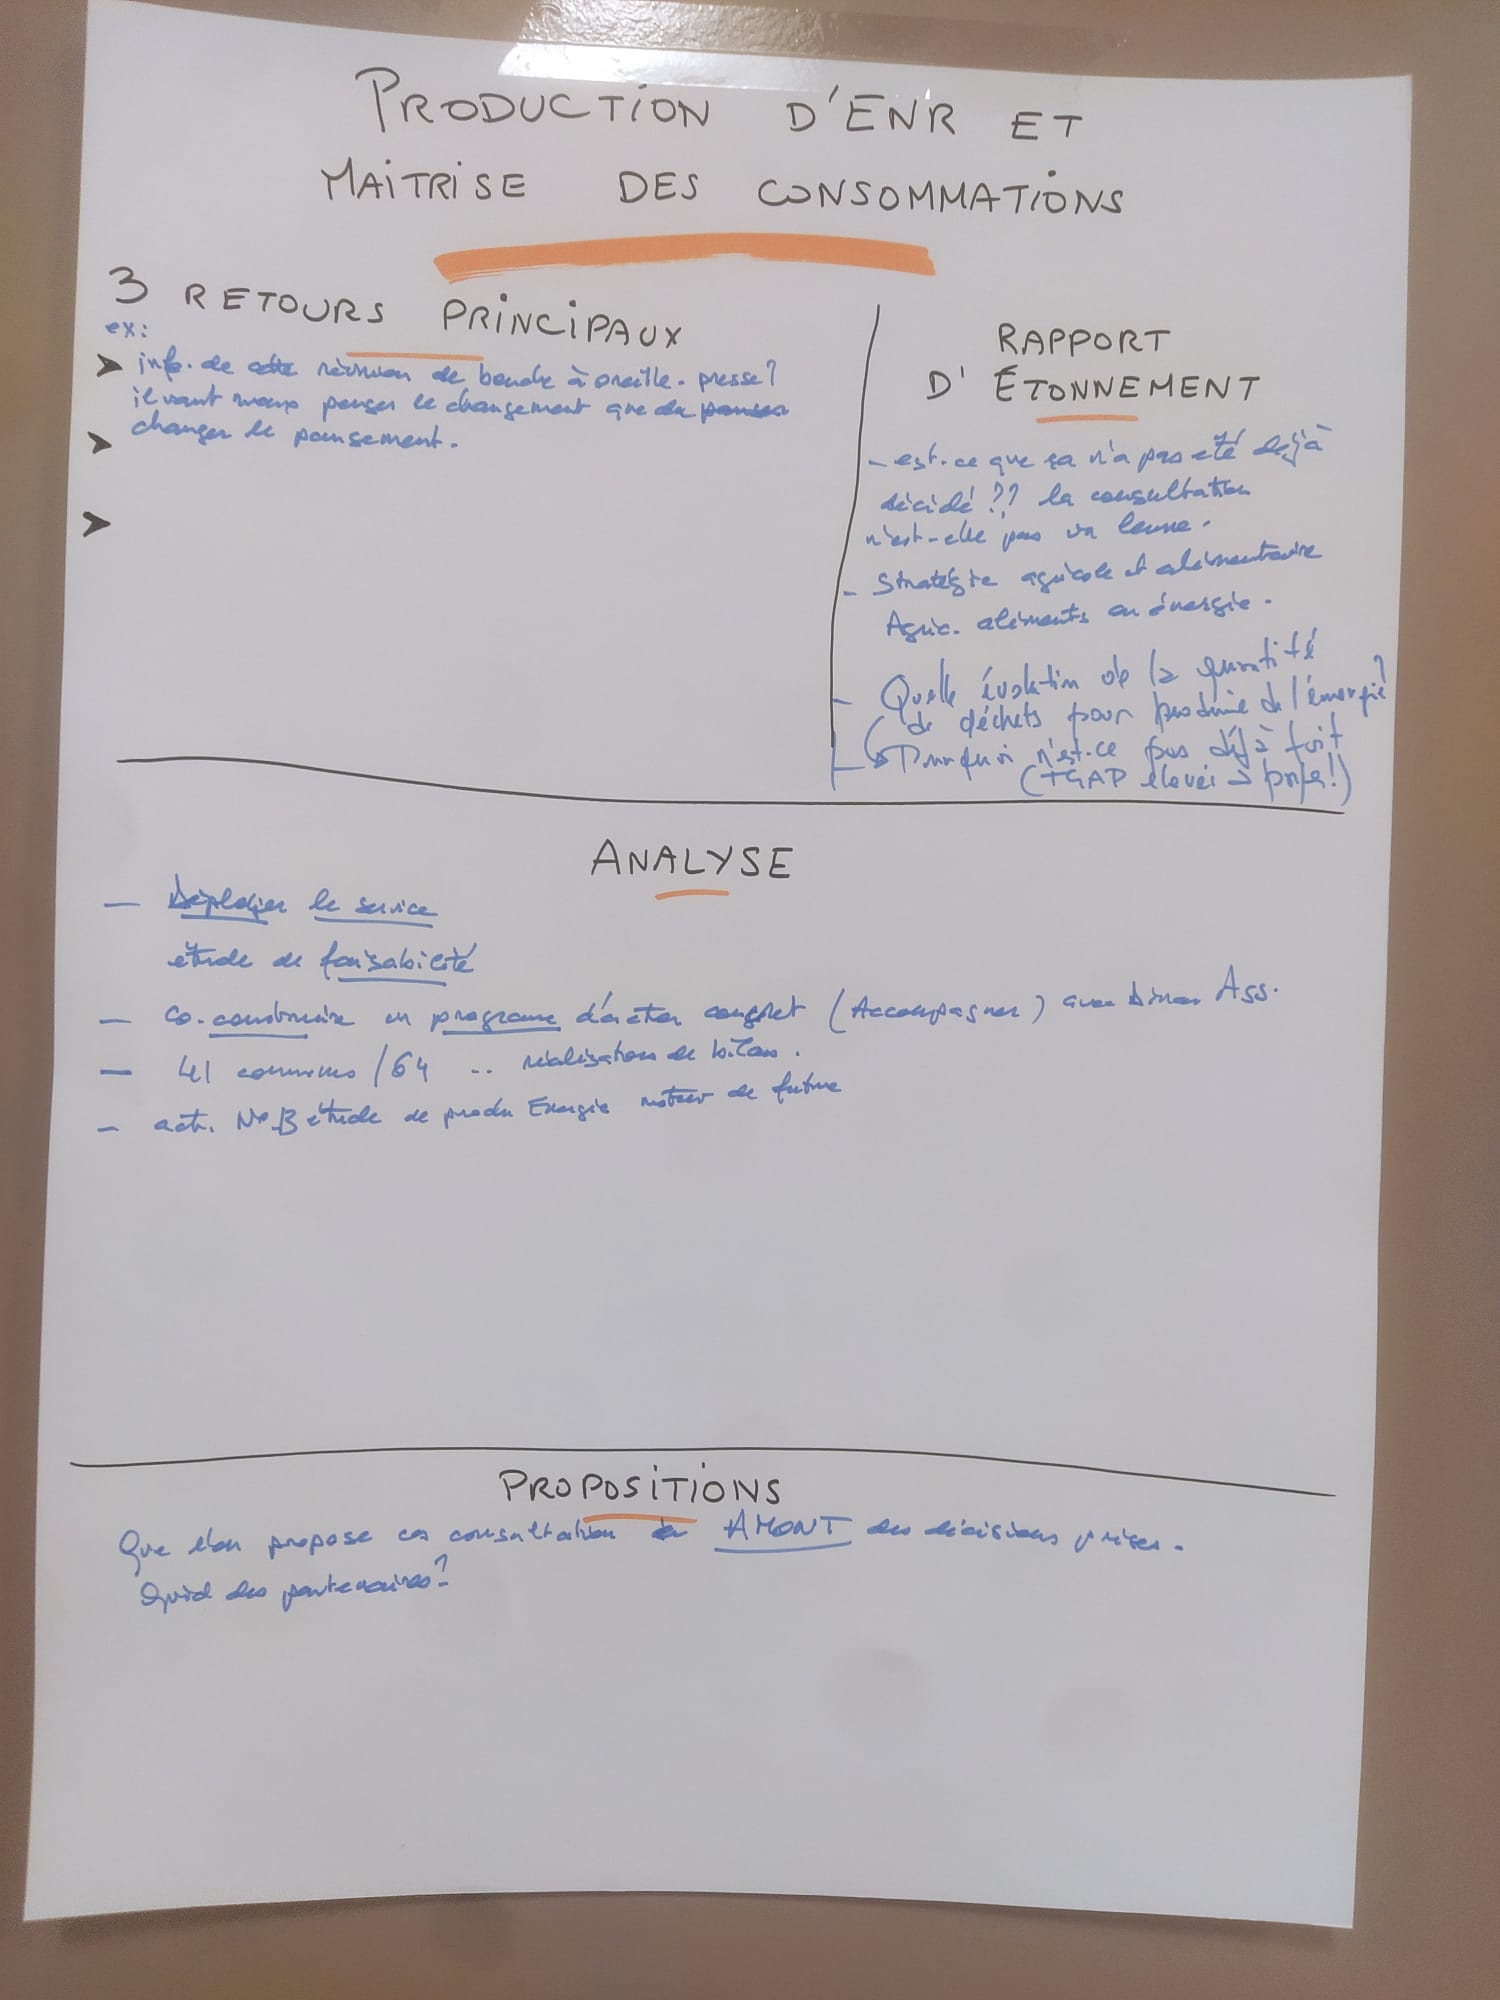 PRODUCTION D'ENR ET
MAITRISE DES CONSOMMATIONS
3 RETOURS PRINCIPAUX
ex:
info. de cette réunion de bouche à oreille. presse?
il vaut penser le changement que
changer le pansement.
RAPPORT
D'ÉTONNEMENT
- est-ce que ça n'a pas été déjà
décidé ?? la consultation
n'est-elle pas un leurre.
- Stratégie agricole et alimentaire
Agric. aliments ou énergie.
- Quelle évolution de la quantité
de déchets pour produire de l'énergie?
Pourquoi n'est-ce pas déjà fait
(TGAP élevée → prépa!)
ANALYSE
- Déployer le service
étude de faisabilité
- co-construire un programe d'action concret (Accompagner) avec Ass.
- 41 communes /64 .. réalisation de bilan.
- act. N° étude de produ Energie moteur de future
PROPOSITIONS
Que l'on propose ces consultation AMONT des décisions prises.
Quid des partenaires?